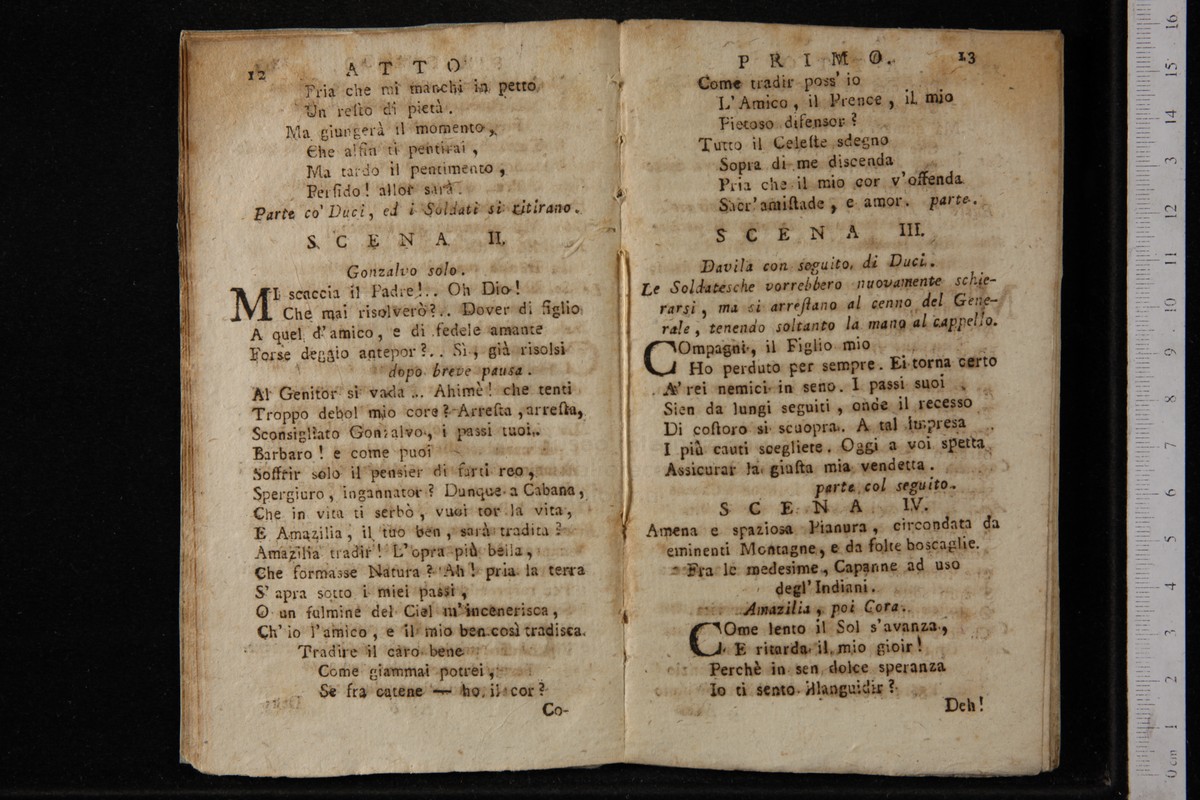 12 ATTO
Pria che mi manchi in petto
Un reſto di pietà.
Ma giungerà il momento,
Che alfin ti pentirai,
Ma tardo il pentimento,
Perfido! allor sarà.
Parte co' Duci, ed i Soldati si ritirano.
SCENA II.
Gonzalvo solo.
MI scaccia il Padre!.. Oh Dio!
Che mai risolverò?.. Dover di figlio
A quel d'amico, e di fedele amante
Forse deggio antepor?.. Sì, già risolsi
dopo breve pausa.
Al Genitor si vada... Ahimè! che tenti
Troppo debol mio core? Arreſta, arreſta,
Sconsigliato Gonzalvo, i passi tuoi.
Barbaro! e come puoi
Soffrir solo il pensier di farti reo,
Spergiuro, ingannator? Dunque a Cabana,
Che in vita ti serbò, vuoi tor la vita,
E Amazilia, il tuo ben, sarà tradita?
Amazilia tradir! L'opra più bella,
Che formasse Natura? Ah! pria la terra
S'apra sotto i miei passi,
O un fulmine del Ciel m'incenerisca,
Ch'io l'amico, e il mio ben così tradisca.
Tradire il caro bene
Come giammai potrei,
Se fra catene — ho il cor?
Co-
PRIMO. 13
Come tradir poss' io
L'Amico, il Prence, il mio
Pietoso difensor?
Tutto il Celeſte sdegno
Sopra di me discenda
Pria che il mio cor v'offenda
Sacr'amiſtade, e amor. parte.
SCENA III.
Davila con seguito di Duci.
Le Soldatesche vorrebbero nuovamente schie-
rarsi, ma si arreſtano al cenno del Gene-
rale, tenendo soltanto la mano al cappello.
COmpagni, il Figlio mio
Ho perduto per sempre. Ei torna certo
A' rei nemici in seno. I passi suoi
Sien da lungi seguiti, onde il recesso
Di coſtoro si scuopra. A tal impresa
I più cauti scegliete. Oggi a voi spetta
Assicurar la giuſta mia vendetta.
parte col seguito.
SCENA IV.
Amena e spaziosa Pianura, circondata da
eminenti Montagne, e da folte boscaglie.
Fra le medesime, Capanne ad uso
degl'Indiani.
Amazilia, poi Cora.
COme lento il Sol s'avanza,
E ritarda il mio gioir!
Perchè in sen dolce speranza
Io ti sento illanguidir?
Deh!
0 cm 1 2 3 4 5 6 7 8 9 10 11 12 13 14 15 16